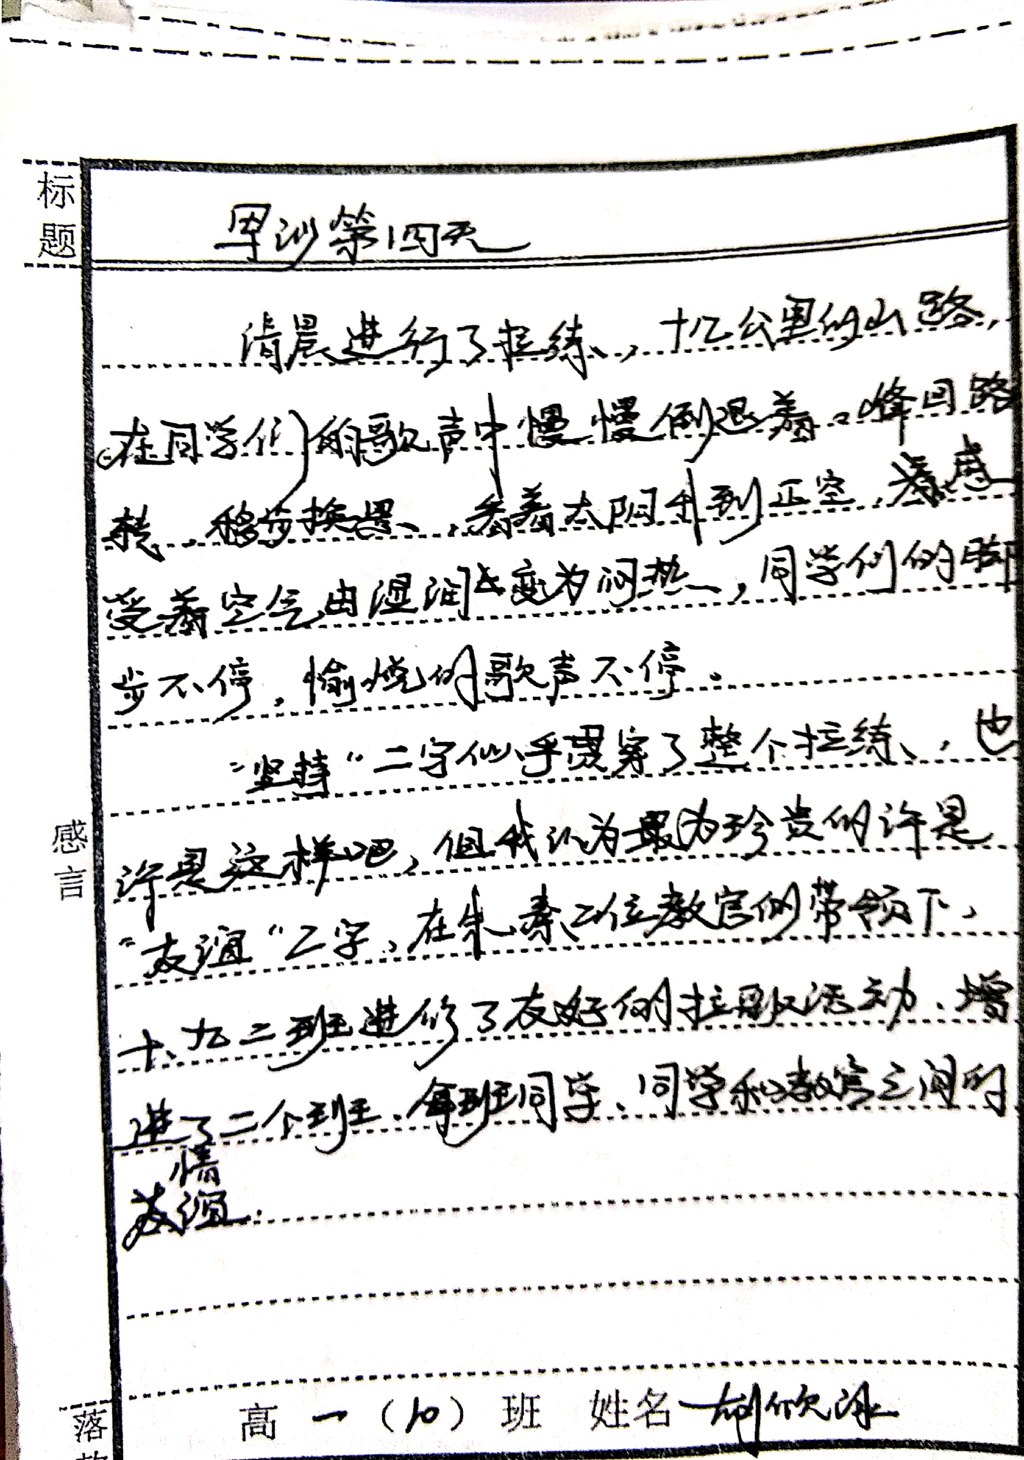 标题
军训第四天
清晨进行了拉练，十几公里的山路，
在同学们的歌声中慢慢倒退着。峰回路
转，移步换景，看着太阳升到正空，感
受着空气由湿润变为闷热，同学们的脚
步不停，愉悦的歌声不停。
"坚持"二字似乎贯穿了整个拉练，也
许是这样吧，但我认为最为珍贵的许是
感言
"友谊"二字，在朱、秦二位教官的带领下，
十、九二班进行了友好的拉歌活动，增
进了二个班、每班同学、同学和教官之间的
情
友谊.
落款
高一（10）班 姓名 胡欣泳